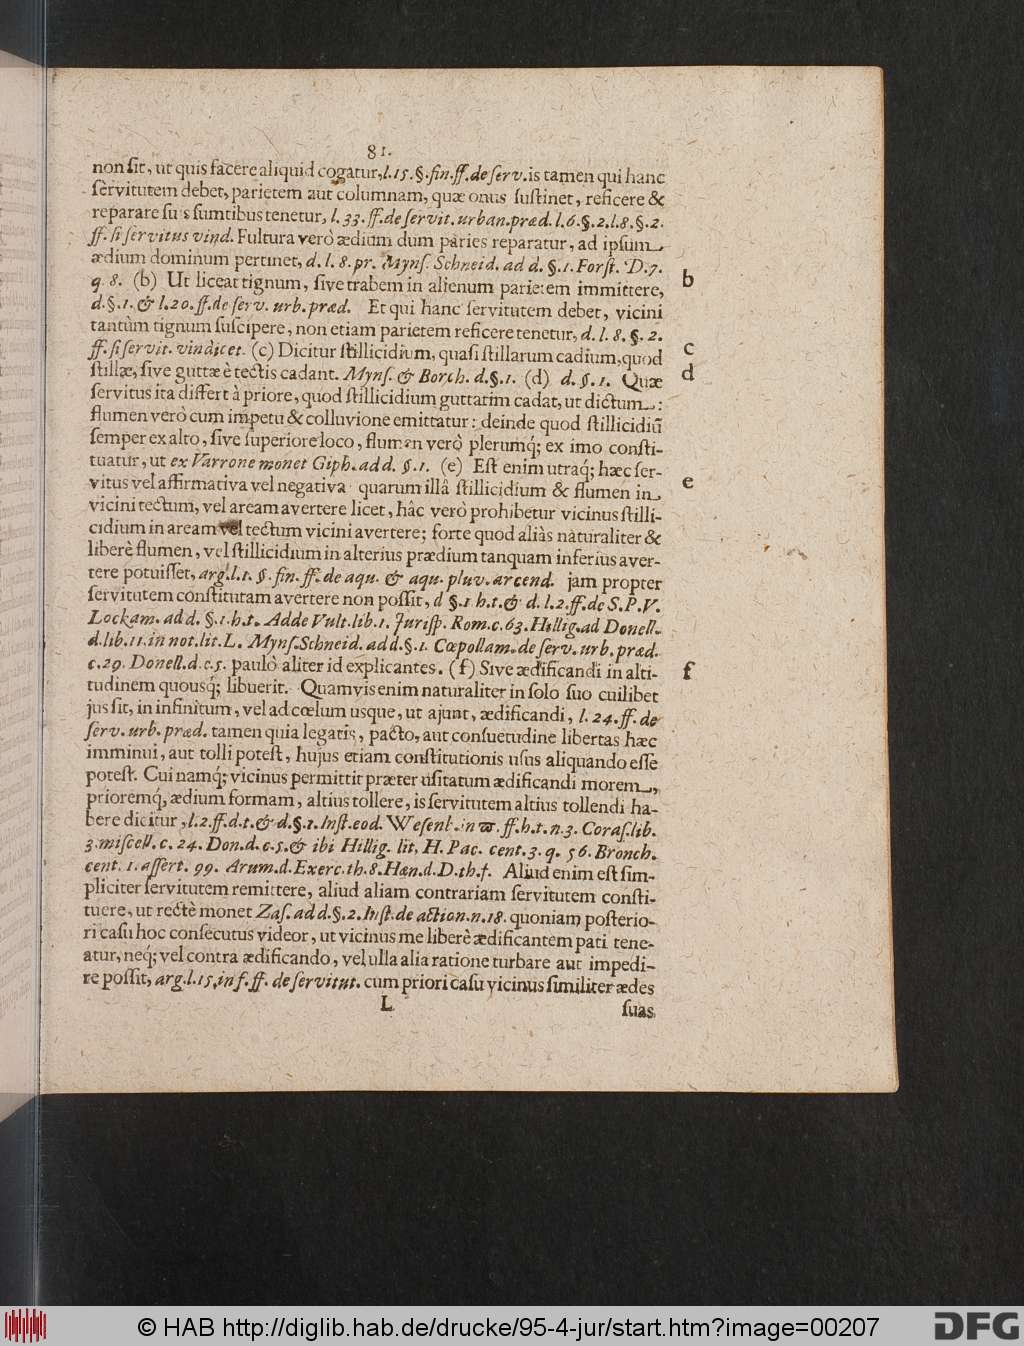 81.
non ſit, ut quis facere aliquid cogatur, l. 15. §. fin. ff. de ſerv. is tamen qui hanc
ſervitutem debet, parietem aut columnam, quæ onus ſuſtinet, reficere &
reparare suis ſumtibus tenetur, l. 33. ff. de ſervit. urban. præd. l. 6. §. 2. l. 8. §. 2.
ff. ſi ſervitus vind. Fultura verò ædium dum paries reparatur, ad ipſum
ædium dominum pertinet, d. l. 8. pr. Mynſ. Schneid. ad d. §. 1. Forſt. D. 7.
q. 8. (b) Ut liceat tignum, ſive trabem in alienum parietem immittere, b
d. §. 1. & l. 20. ff. de ſerv. urb. præd. Et qui hanc ſervitutem debet, vicini
tantùm tignum ſuſcipere, non etiam parietem reficere tenetur, d. l. 8. §. 2.
ff. ſi ſervit. vindicet. (c) Dicitur ſtillicidium, quaſi ſtillarum cadium, quod c
ſtillæ, ſive guttæ è tectis cadant. Mynſ. & Borch. d. §. 1. (d) d. §. 1. Quæ d
ſervitus ita differt à priore, quod ſtillicidium guttatim cadat, ut dictum:
flumen verò cum impetu & colluvione emittatur: deinde quod ſtillicidiũ
ſemper ex alto, ſive ſuperiore loco, flumen verò plerumq́; ex imo conſti-
tuatur, ut ex Varrone monet Giph. ad d. §. 1. (e) Eſt enim utraq́; hæc ſer-
vitus vel affirmativa vel negativa quarum illâ ſtillicidium & flumen in e
vicini tectum, vel aream avertere licet, hâc verò prohibetur vicinus ſtilli-
cidium in aream vel tectum vicini avertere; forte quod aliàs naturaliter &
liberè flumen, vel ſtillicidium in alterius prædium tanquam inferius aver-
tere potuiſſet, arg. l. 1. §. fin. ff. de aqu. & aqu. pluv. arcend. jam propter
ſervitutem conſtitutam avertere non poſſit, d §. 1 h. t. & d. l. 2. ff. de S. P. V.
Lockam. ad d. §. 1. h. t. Adde Vult. lib. 1. Juriſp. Rom. c. 63. Hillig. ad Donell.
d. lib. 11. in not. lit. L. Mynſ. Schneid. ad d. §. 1. Cœpollam. de ſerv. urb. præd.
c. 29. Donell. d. c. 5. paulò aliter id explicantes. (f) Sive ædificandi in alti- f
tudinem quousq́; libuerit. Quamvis enim naturaliter in ſolo ſuo cuilibet
jus ſit, in infinitum, vel ad cœlum usque, ut ajunt, ædificandi, l. 24. ff. de
ſerv. urb. præd. tamen quia legatis, pacto, aut conſuetudine libertas hæc
imminui, aut tolli poteſt, hujus etiam conſtitutionis uſus aliquando eſſe
poteſt. Cui namq́; vicinus permittit præter uſitatum ædificandi morem,
prioremq́, ædium formam, altius tollere, is ſervitutem altius tollendi ha-
bere dicitur, l. 2. ff. d. t. & d. §. 1. Inſt. eod. Weſenb. in ϖ. ff. h. t. n. 3. Coraſ. lib.
3. miſcell. c. 24. Don. d. c. 5. & ibi Hillig. lit. H. Pac. cent. 3. q. 56. Bronch.
cent. 1. aſſert. 99. Arum. d. Exerc. th. 8. Han. d. D. th. f. Aliud enim eſt ſim-
pliciter ſervitutem remittere, aliud aliam contrariam ſervitutem conſti-
tuere, ut rectè monet Zaſ. ad d. §. 2. Inſt. de action. n. 18. quoniam poſterio-
ri caſu hoc conſecutus videor, ut vicinus me liberè ædificantem pati tene-
atur, neq́; vel contra ædificando, vel ulla alia ratione turbare aut impedi-
re poſſit, arg. l. 15. in f. ff. de ſervitut. cum priori caſu vicinus ſimiliter ædes
L ſuas
© HAB http://diglib.hab.de/drucke/95-4-jur/start.htm?image=00207 DFG